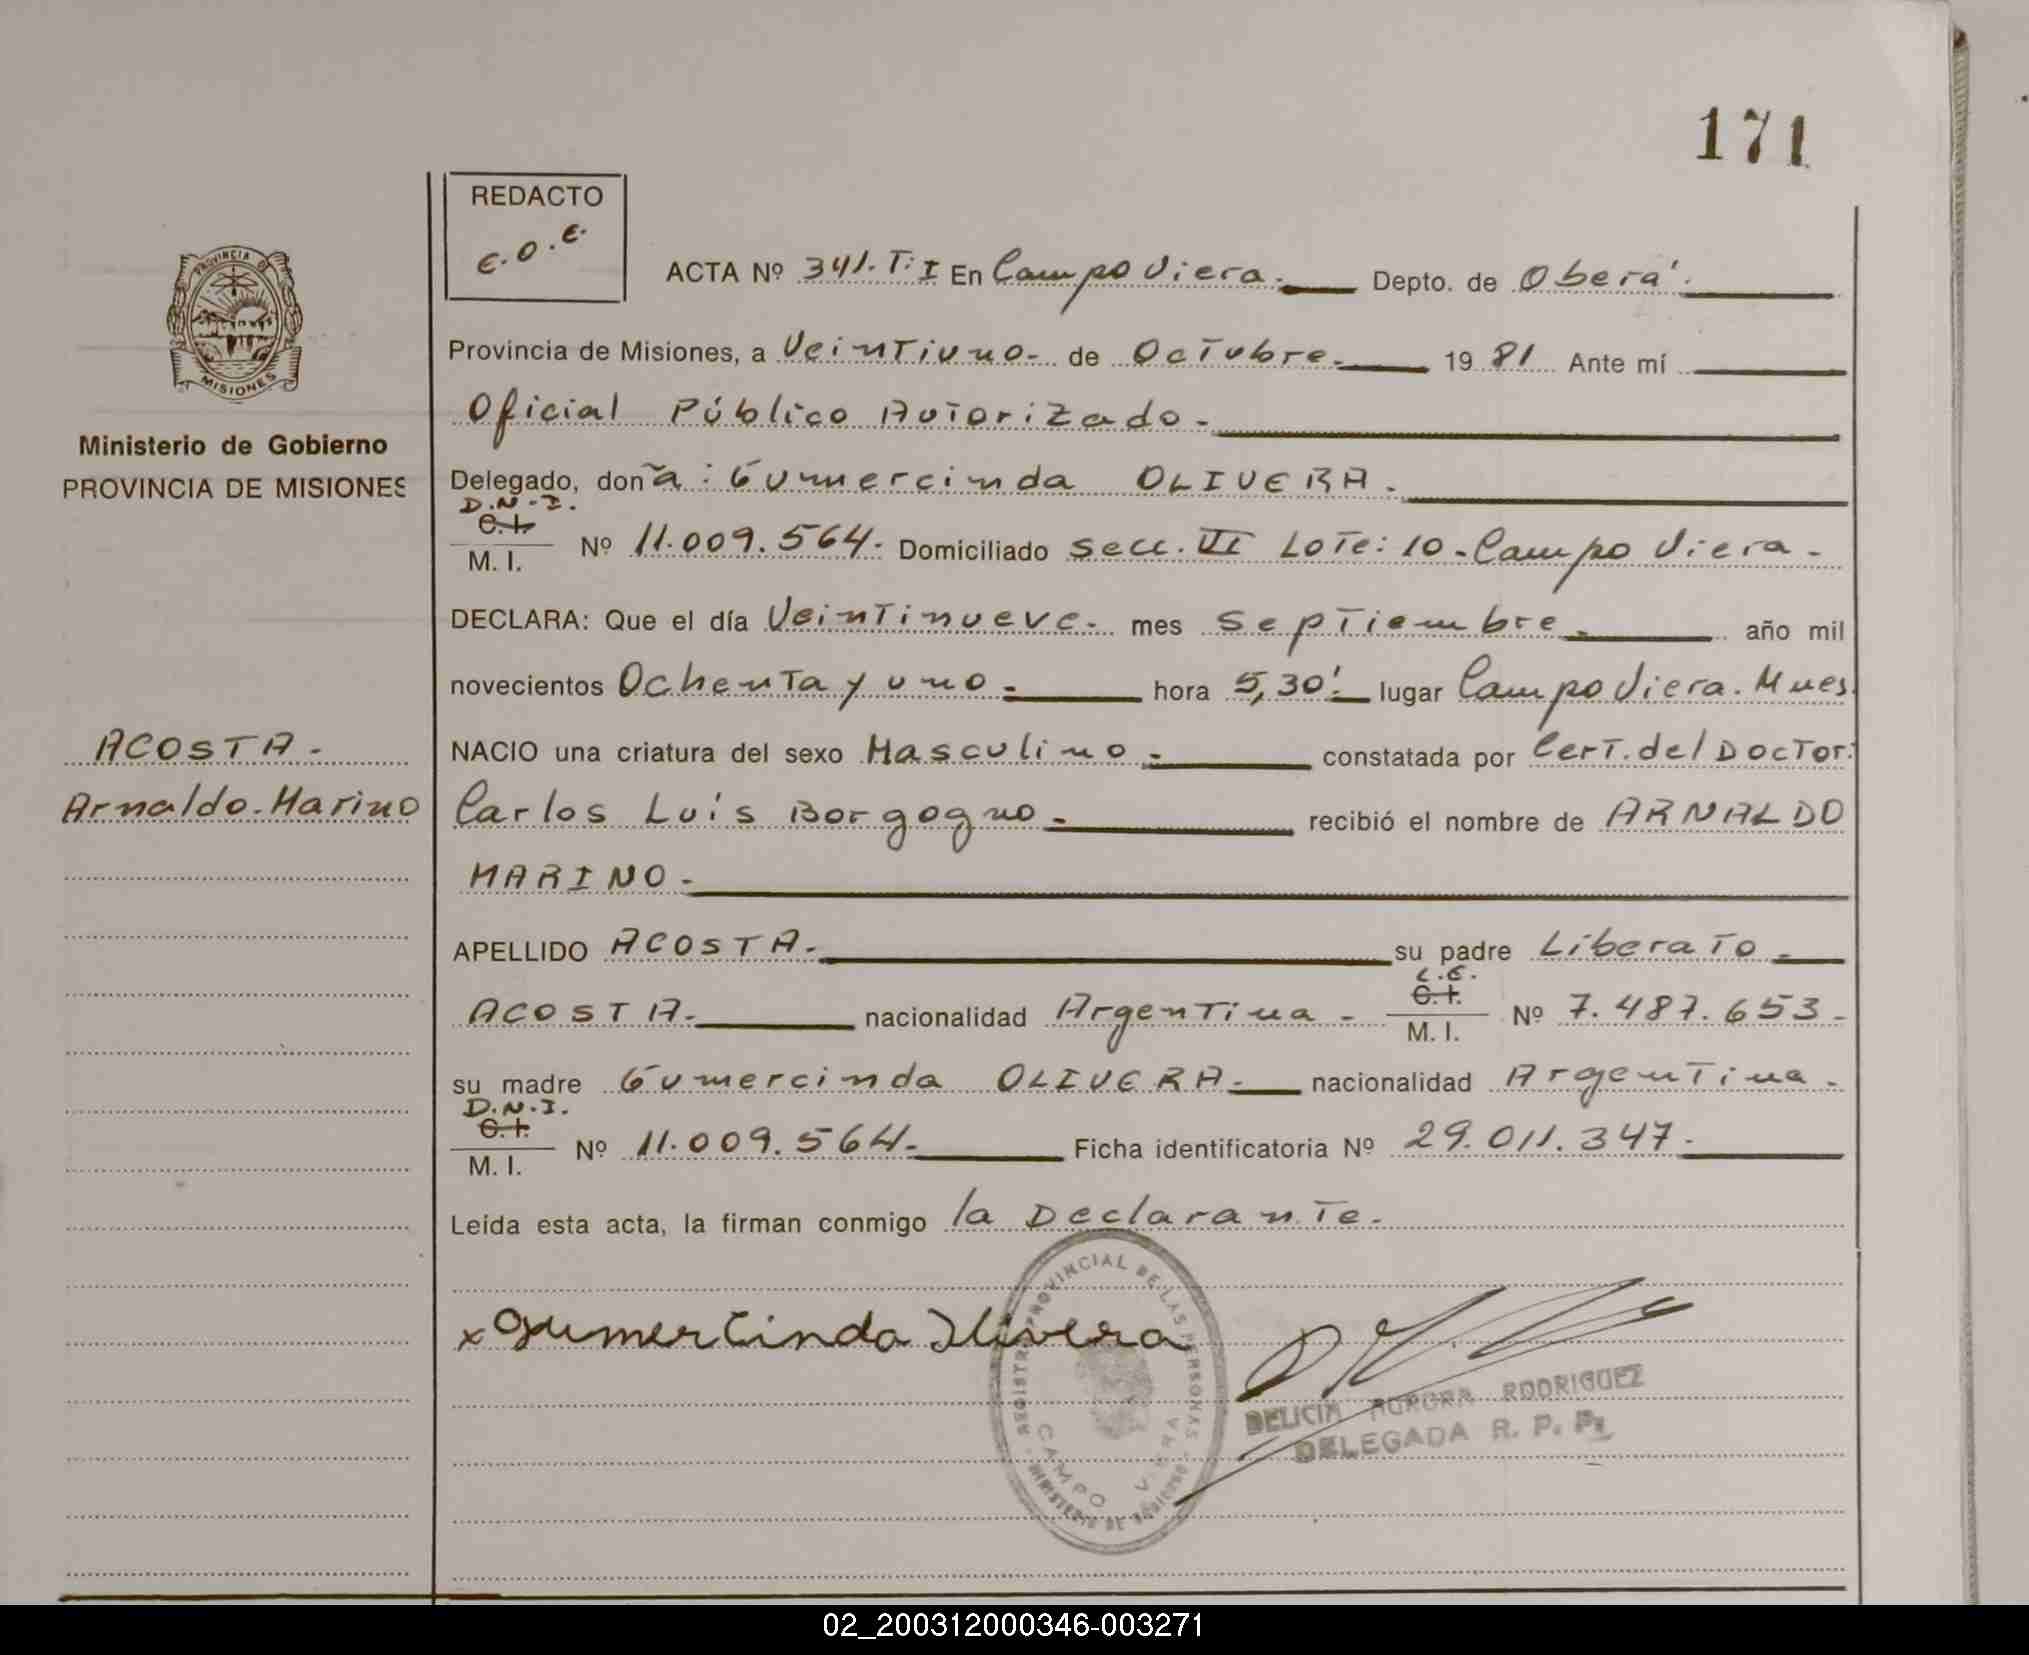 171
REDACTO
E.O.E.
PROVINCIA DE
MISIONES
Ministerio de Gobierno
PROVINCIA DE MISIONES
ACOSTA.
Arnaldo-Marino
ACTA Nº 341.T:I En Campo Viera. Depto. de Oberá.
Provincia de Misiones, a Veintiuno- de Octubre. 1981 Ante mí
Oficial Público Autorizado-
Delegado, doña: Gumercinda OLIVERA.
D.N.I.
C.I.
M. I. Nº 11.009.564. Domiciliado Secc. VI Lote: 10-Campo Viera-
DECLARA: Que el día Veintinueve- mes Septiembre- año mil
novecientos Ochenta y uno- hora 5,30'- lugar Campo Viera. Mnes.
NACIO una criatura del sexo Masculino- constatada por Cert. del Doctor:
Carlos Luis Borgogno- recibió el nombre de ARNALDO
MARINO-
APELLIDO ACOSTA- su padre Liberato-
ACOSTA- nacionalidad Argentina- L.E.
C.I.
M. I. Nº 7.487.653-
su madre Gumercinda OLIVERA- nacionalidad Argentina-
D.N.I.
C.I.
M. I. Nº 11.009.564- Ficha identificatoria Nº 29.011.347-
Leída esta acta, la firman conmigo la Declarante-
x Gumercinda Olivera
REGISTRO PROVINCIAL DE LAS PERSONAS
CAMPO VIERA
MINISTERIO DE GOBIERNO
DELICIA AURORA RODRIGUEZ
DELEGADA R. P. P.
02_200312000346-003271